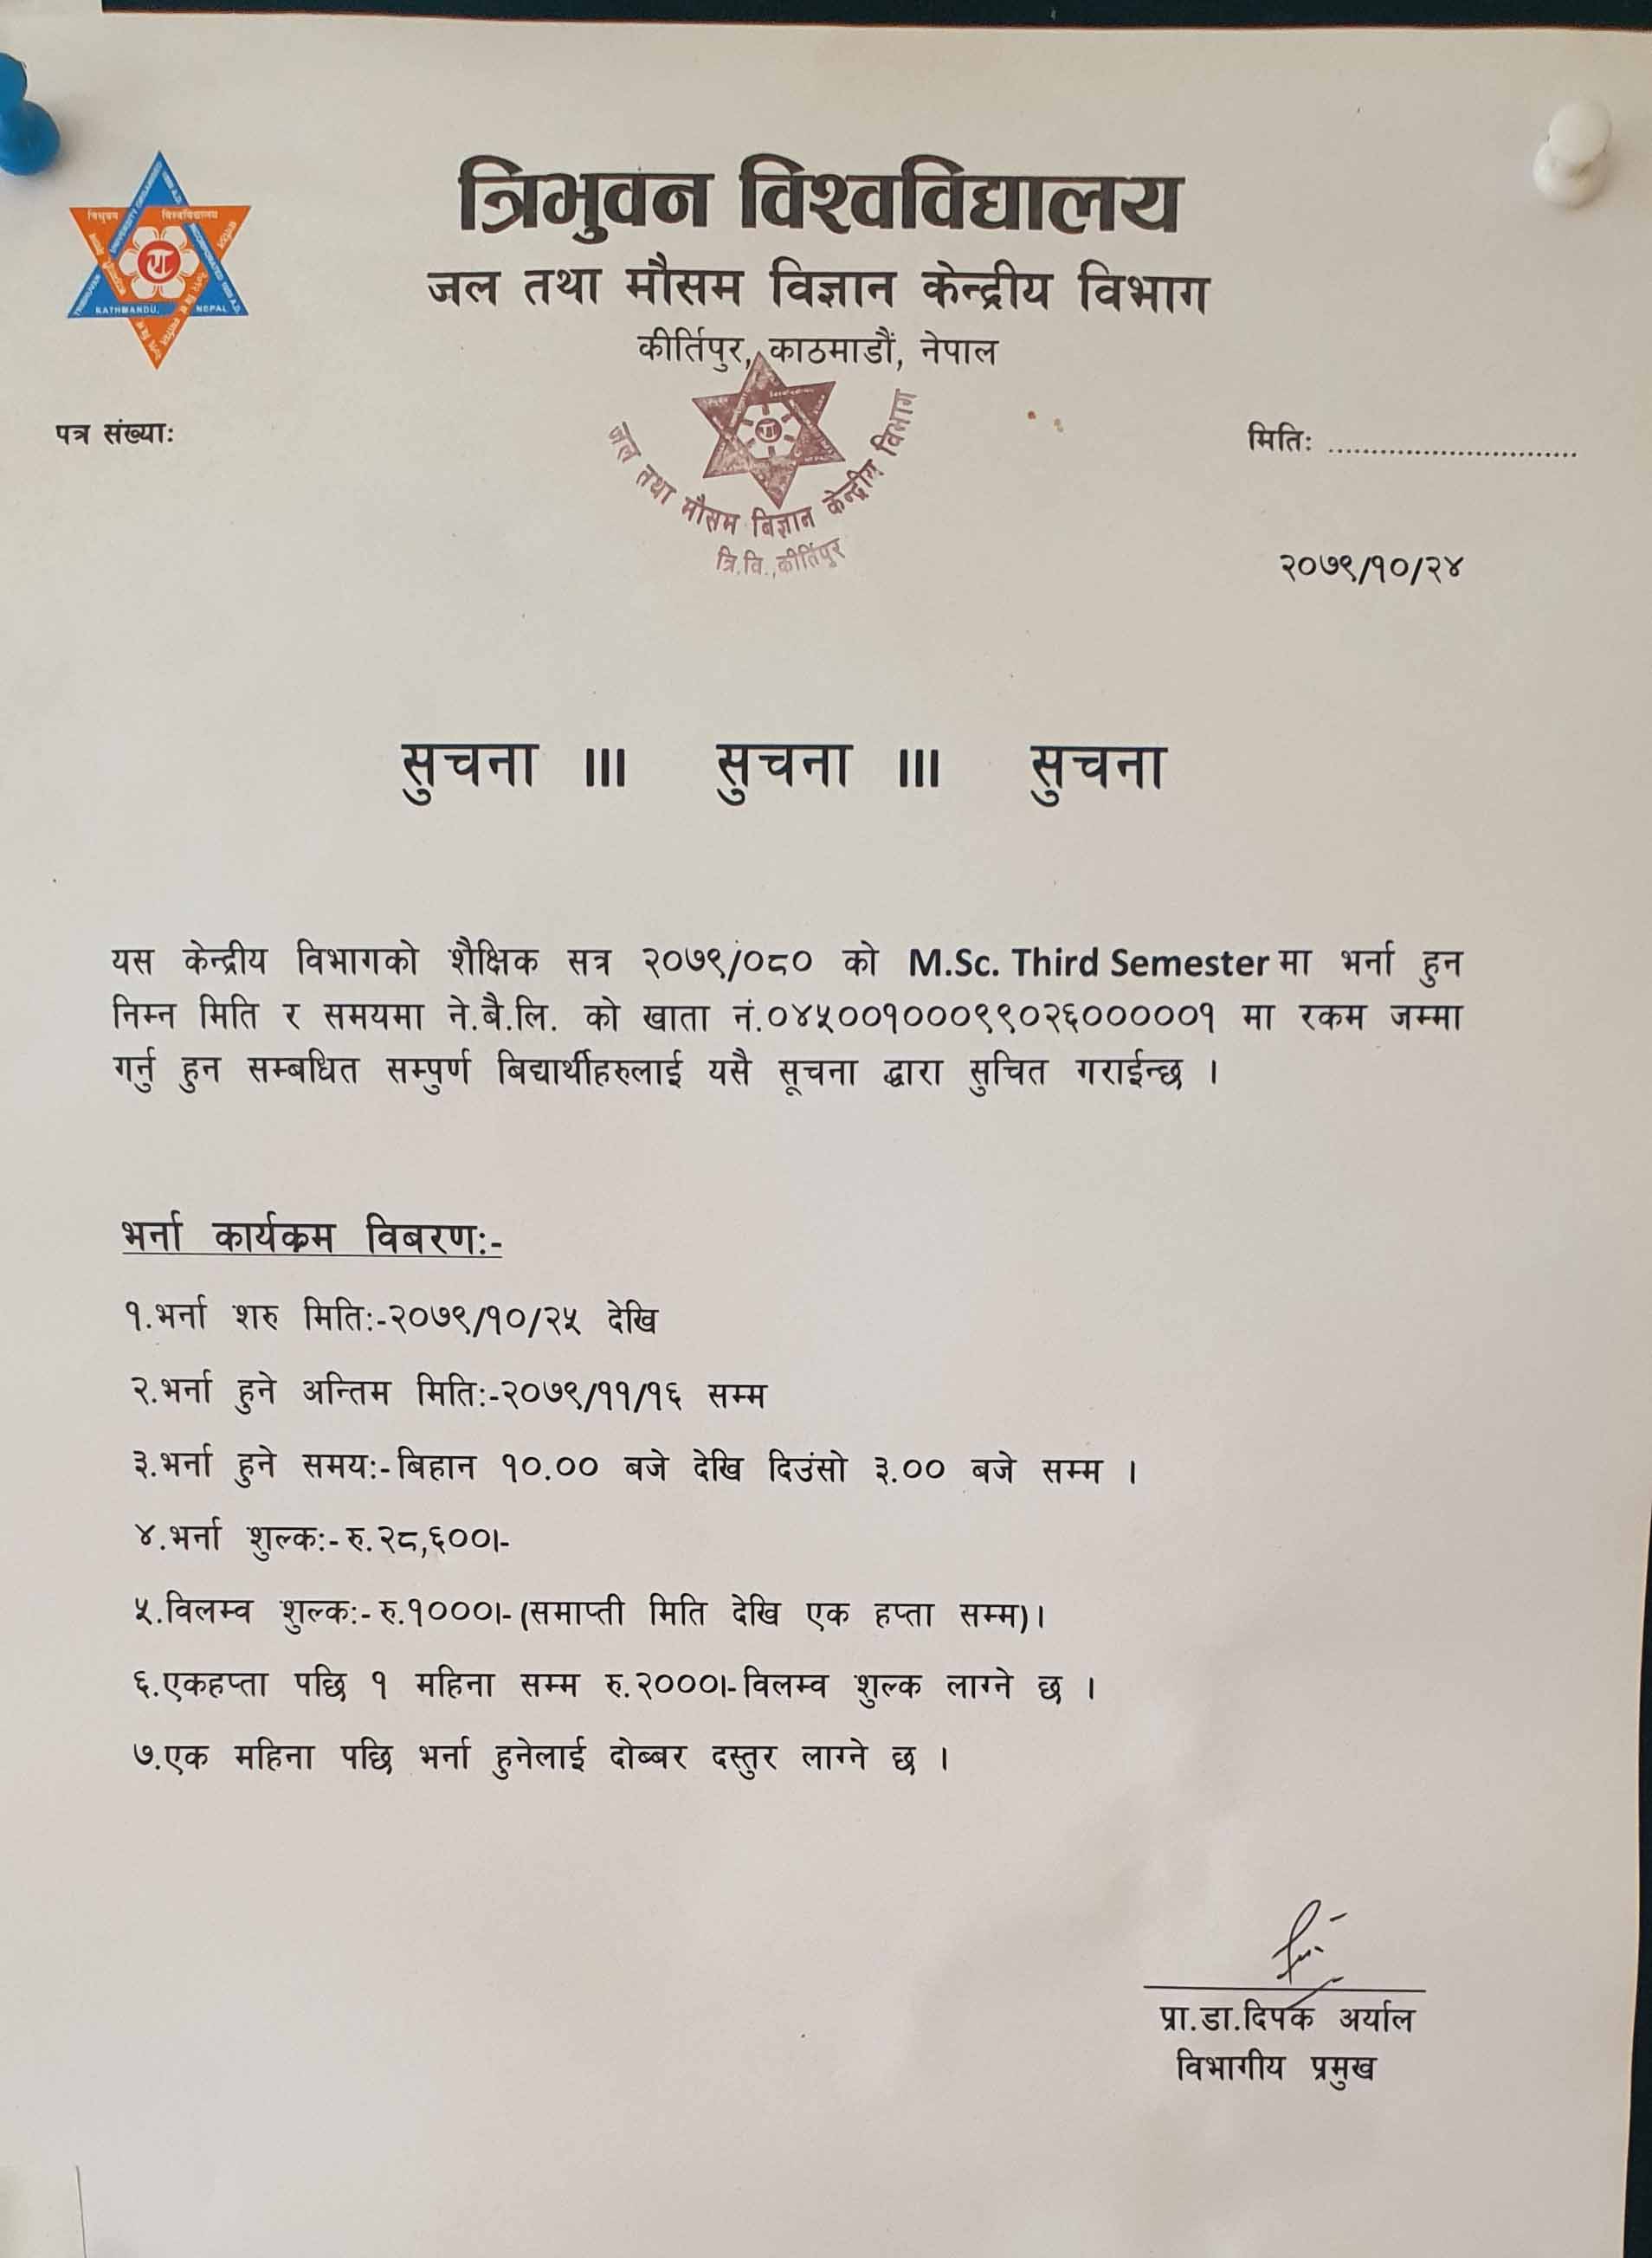 त्रिभुवन विश्वविद्यालय
जल तथा मौसम विज्ञान केन्द्रीय विभाग
कीर्तिपुर, काठमाडौं, नेपाल
त्रिभुवन विश्वविद्यालय
KATHMANDU, NEPAL
जल तथा मौसम विज्ञान केन्द्रीय विभाग
त्रि.वि.,कीर्तिपुर
पत्र संख्याः
मितिः ............................
२०७९/१०/२४
सुचना ।।। सुचना ।।। सुचना
यस केन्द्रीय विभागको शैक्षिक सत्र २०७९/०८० को M.Sc. Third Semester मा भर्ना हुन
निम्न मिति र समयमा ने.बै.लि. को खाता नं.०४५००१०००९९०२६०००००१ मा रकम जम्मा
गर्नु हुन सम्बधित सम्पुर्ण बिद्यार्थीहरुलाई यसै सूचना द्धारा सुचित गराईन्छ ।
भर्ना कार्यकम विबरणः-
१.भर्ना शरु मितिः-२०७९/१०/२५ देखि
२.भर्ना हुने अन्तिम मितिः-२०७९/११/१६ सम्म
३.भर्ना हुने समयः-बिहान १०.०० बजे देखि दिउंसो ३.०० बजे सम्म ।
४.भर्ना शुल्कः- रु.२८,६००।-
५.विलम्व शुल्कः- रु.१०००।- (समाप्ती मिति देखि एक हप्ता सम्म)।
६.एकहप्ता पछि १ महिना सम्म रु.२०००।- विलम्व शुल्क लाग्ने छ ।
७.एक महिना पछि भर्ना हुनेलाई दोब्बर दस्तुर लाग्ने छ ।
प्रा.डा.दिपक अर्याल
विभागीय प्रमुख